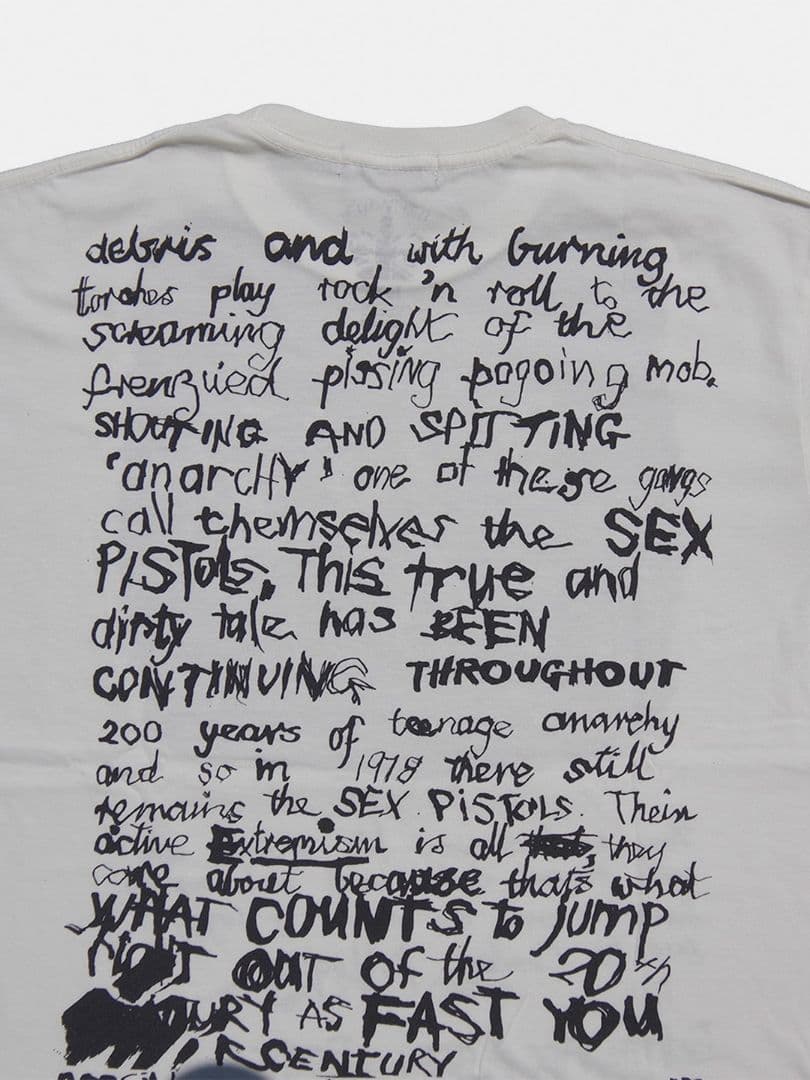 debris and with burning
torches play rock 'n roll to the
screaming delight of the
frenzied pissing pogoing mob.
SHOUTING AND SPITTING
'anarchy' one of these gangs
call themselves the SEX
PISTOLS. This true and
dirty tale has BEEN
CONTINUING THROUGHOUT
200 years of teenage anarchy
and so in 1978 there still
remains the SEX PISTOLS. Their
active Extremism is all they
care about because that's what
WHAT COUNTS to jump
RIGHT OUT of the 20th
AS FAST YOU
CENTURY